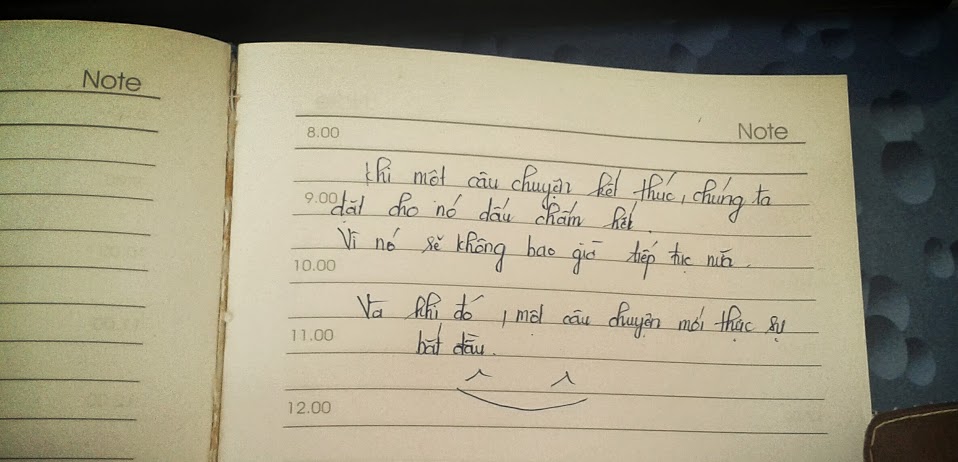 Note
Note
8.00
Khi một câu chuyện kết thúc, chúng ta
9.00 đặt cho nó dấu chấm hết.
Vì nó sẽ không bao giờ tiếp tục nữa.
10.00
Và khi đó, một câu chuyện mới thực sự
11.00 bắt đầu.
12.00